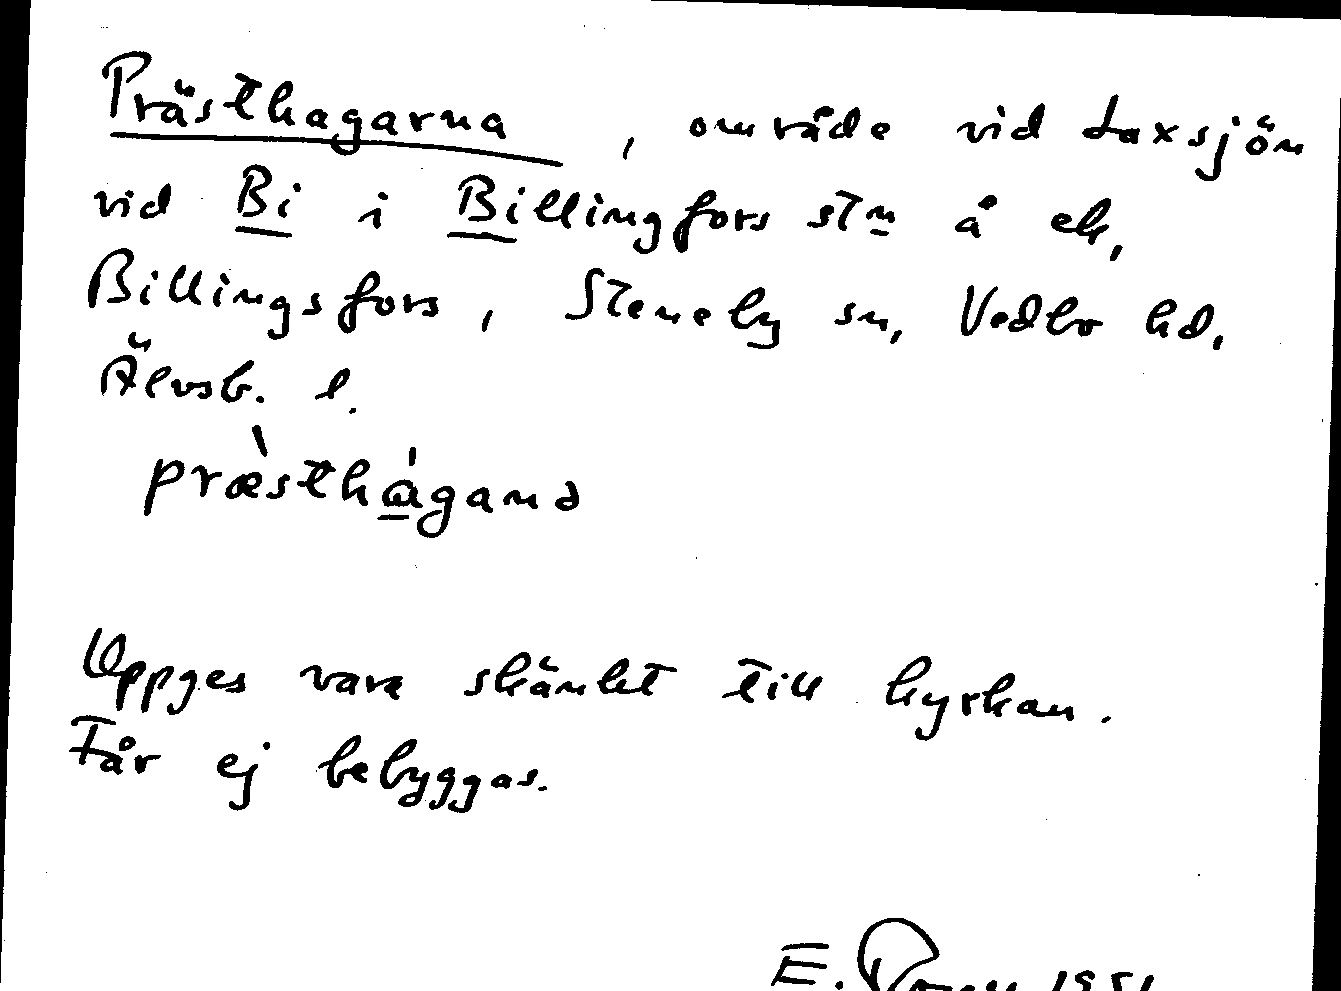 Prästhagarna, område vid Laxsjön
vid Bi i Billingfors stn å ek,
Billingsfors, Steneby sn, Vedbo hd,
Älvsb. l.
præ̀sthág̀anə
Uppges vara skänkt till kyrkan.
Får ej bebyggas.
E.